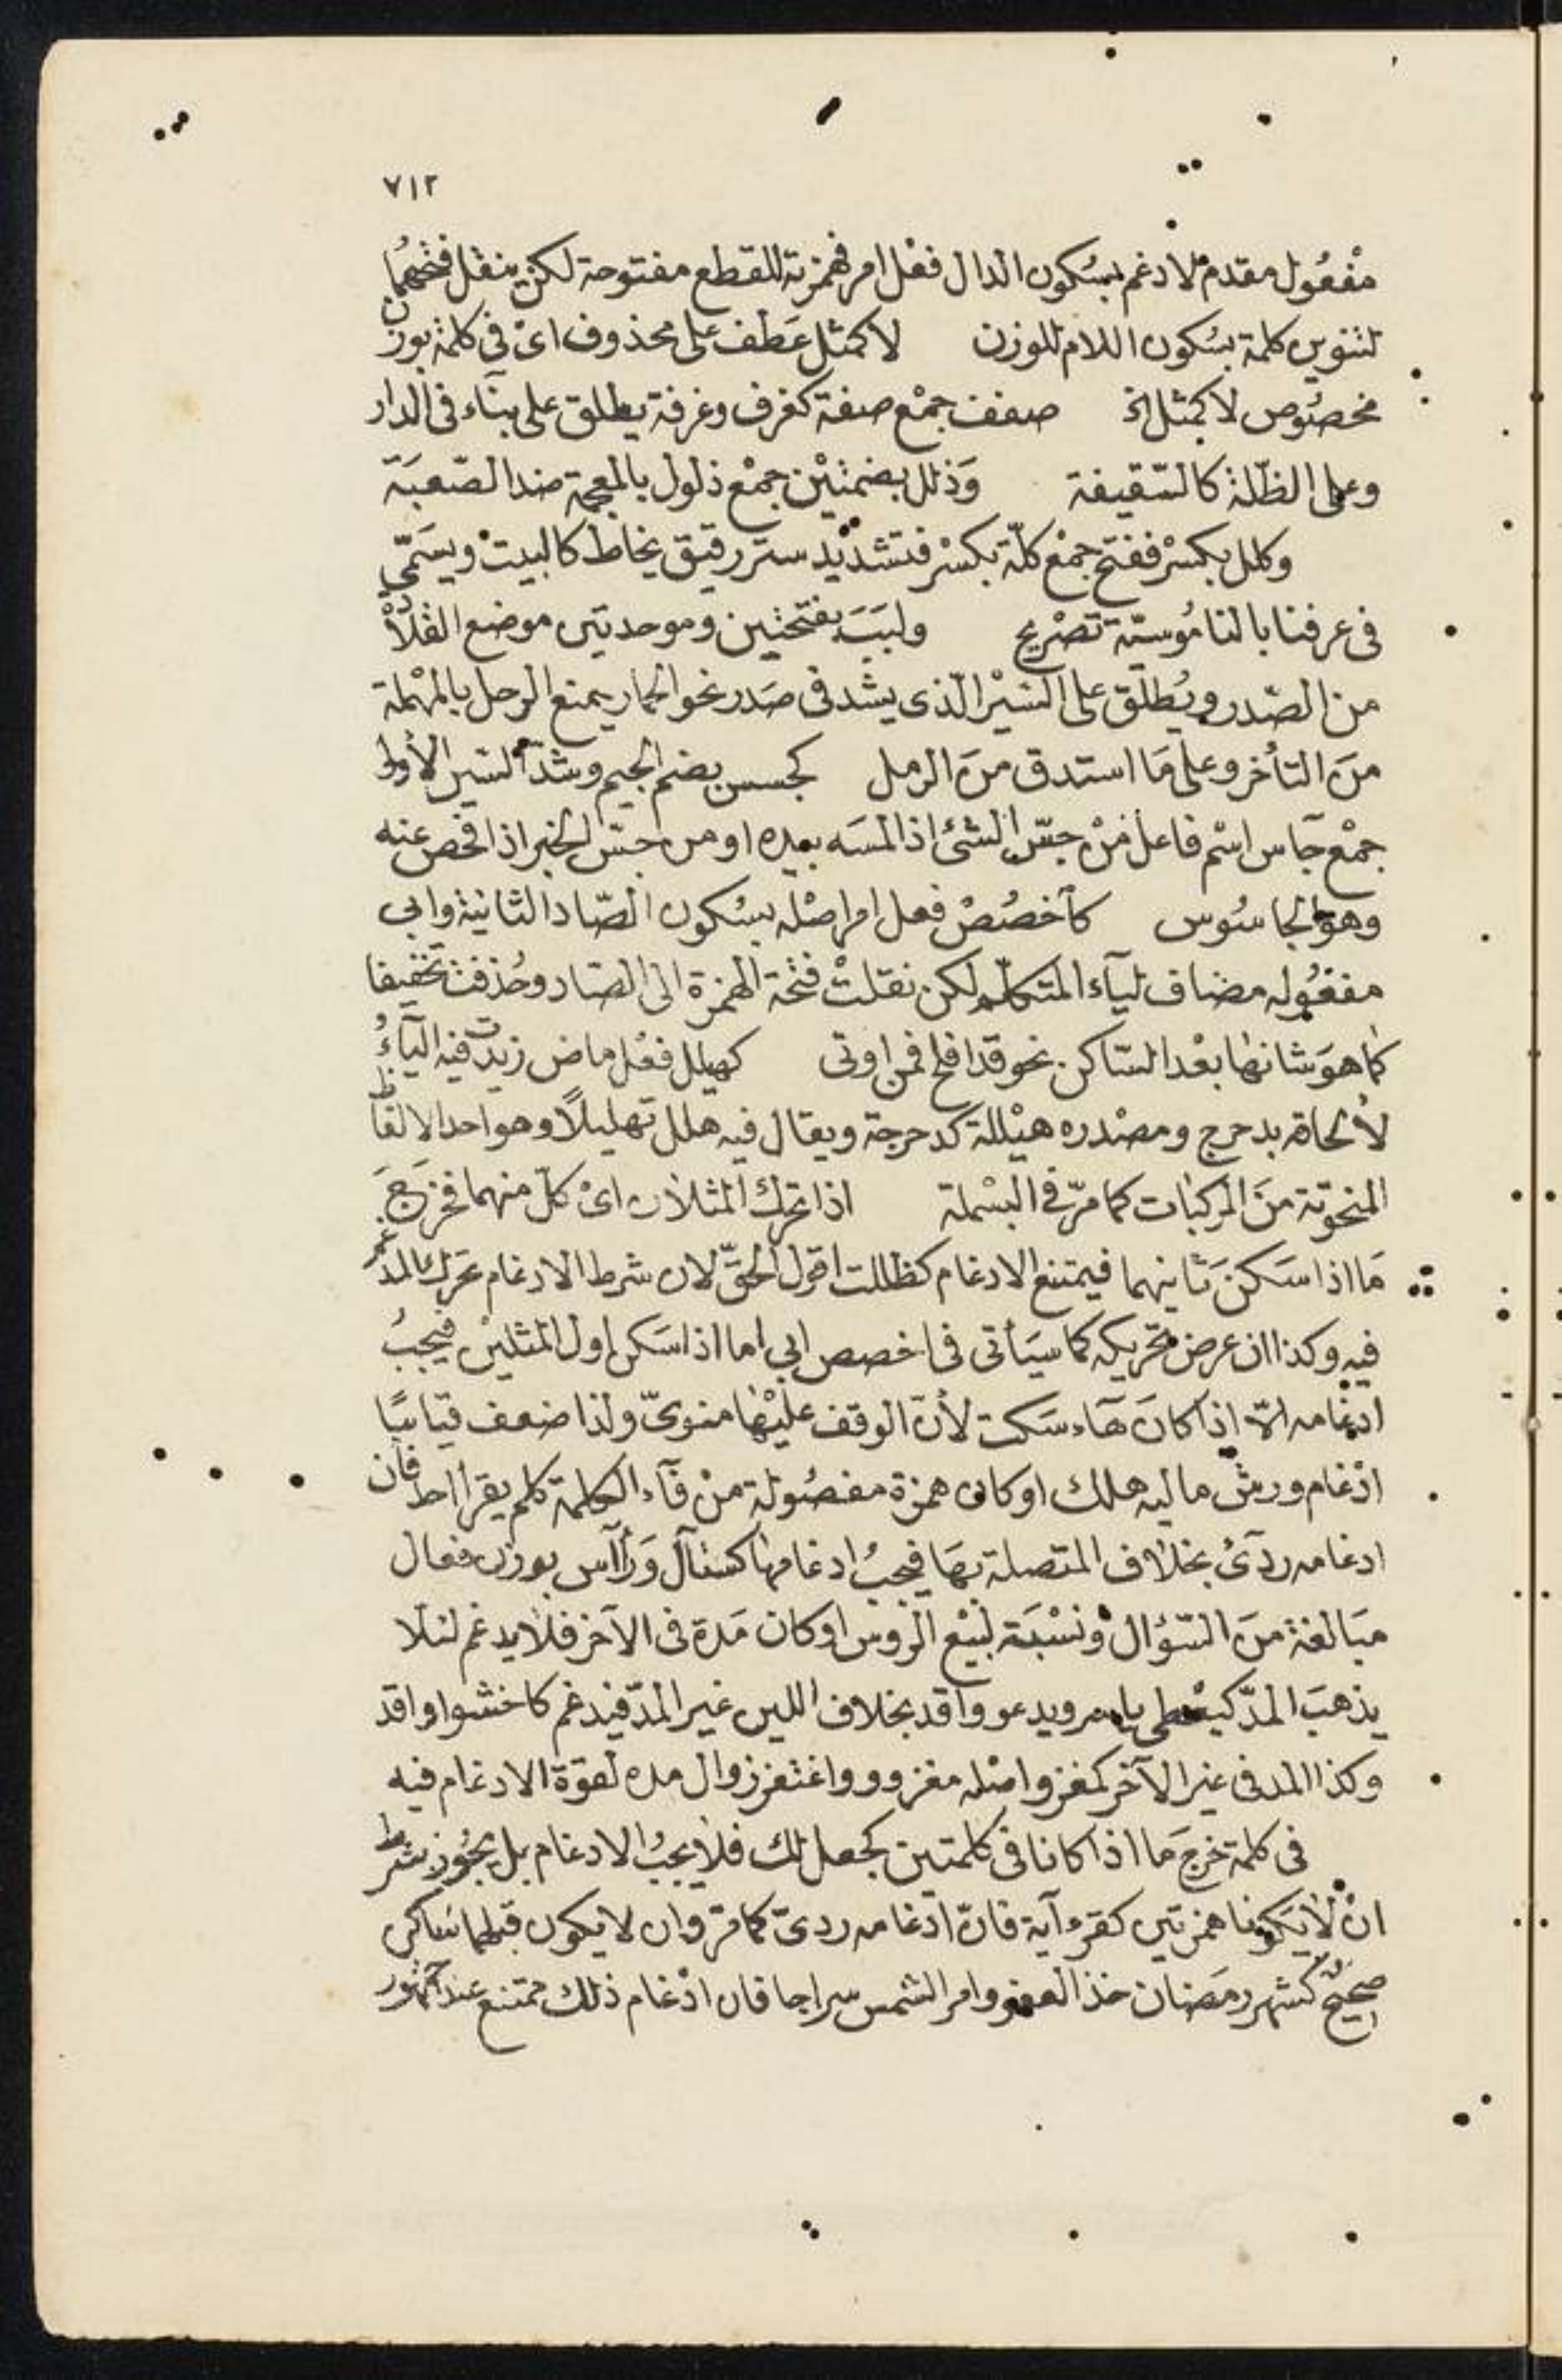 ٧١٢
مفْعُول مقدم لادغم بسُكون الدال ففْل امر فهمزته للقطع مفتوحة لكن ينقل فتحهُا
لتنوين كلمة بسُكون اللام للوزن لا كمثل عَطف على محذوف اىْ فى كلمة بوزن
مخصُوص لا كمثل الخ صفف جمْع صفة كغرف وغرفة يطلق على بنآء فى الدار
وعلى الظلّة كالسّقيفة وَذلل بضمتيْن جمْع ذلول بالمعجمة ضد الصّعبَة
وكلل بكسْر ففتح جمْع كلّة بكسْر فتشديْد ستر رقيق يخاط كالبيت ويسَمّى
فى عرفنا بالنامُوسيّة تصْريح ولبَبَ بفتحتين وموحدتين موضع القلادْة
من الصّدر ويُطلق على السّيْر الّذى يشد فى صَدر نحو الحمار يمنع الرحل بالمهْملة
منَ التأخر وعلى مَا استدق منَ الرمل كجسس بضم الجيم وشدّ السين الأولى
جمْع جآس اسْم فاعل منْ جسّ الشئ اذا لمسَه بيده او من جسّ الخبر اذا فحص عنه
وهو الجاسُوس كأخصُصْ فعل امر اصْله بسُكون الصّاد الثانية وابى
مفعُوله مضاف ليآء المتكلّم لكن نقلتْ فتحة الهمزة الى الصّاد وحُذفت تخفيفا
كما هوَ شانها بعْد السّاكن نحو قد افلح فمن اوتى كهيلل ففْل ماض زيدت فيه اليآءُ
لألحاقه بدحرج ومصْدره هيْللة كدحرجة ويقال فيه هلل تهليلًا وهو احد الالفاظ
المنحوتة منَ المركبات كما مرّ فى البسْملة اذا تحرك المثلان اىْ كلّ منهما فخرَجَ
مَا اذا سَكنَ ثانيهما فيمتنع الادغام كظللت اقول الحقّ لان شرط الادغام تحرك المدغم
فيه وكذا ان عرض تحريكه كما سيَأتى فى اخصص ابى اما اذا سَكن اول المثليْن فيجبُ
ادغامه الّا اذا كانَ هآء سَكت لأنّ الوقف عليْها منوىّ ولذا ضعف قياسًا
ادْغام ورش ماليه هلك او كان همزة مفصُولة منْ فآء الكلمة كلم يقرأ احد فان
ادغامه ردئُ بخلاف المتصلة بهَا فيجبُ ادغامها كسئآل وَرأآس بوزن فعال
مبَالغة منَ السّؤال ونسْبَة لبيْع الرؤس او كان مَدة فى الآخر فلا يدغم لئلا
يذهبَ المدّ كيعْطى ياسر ويدعو واقد بخلاف اللين غير المدّ فيدغم كاخشوا واقد
وكذا المد فى غير الآخر كمغزو اصْله مغزوو واغتفر زوال مده لقوّة الادغام فيه
فى كلمة خرج مَا اذا كانا فى كلمتين كجعل لك فلا يجبُ الادغام بل يجُوز بشرط
انْ لا يَكونا همزتين كقرء آية فانّ ادْغامه ردىّ كما مرّ وان لا يكون قبلهما سَاكن
صحيحٌ كشهر رمَضان خذ العفو وامر الشمس سراجا فان ادْغام ذلك ممتنع عند الجمهُور